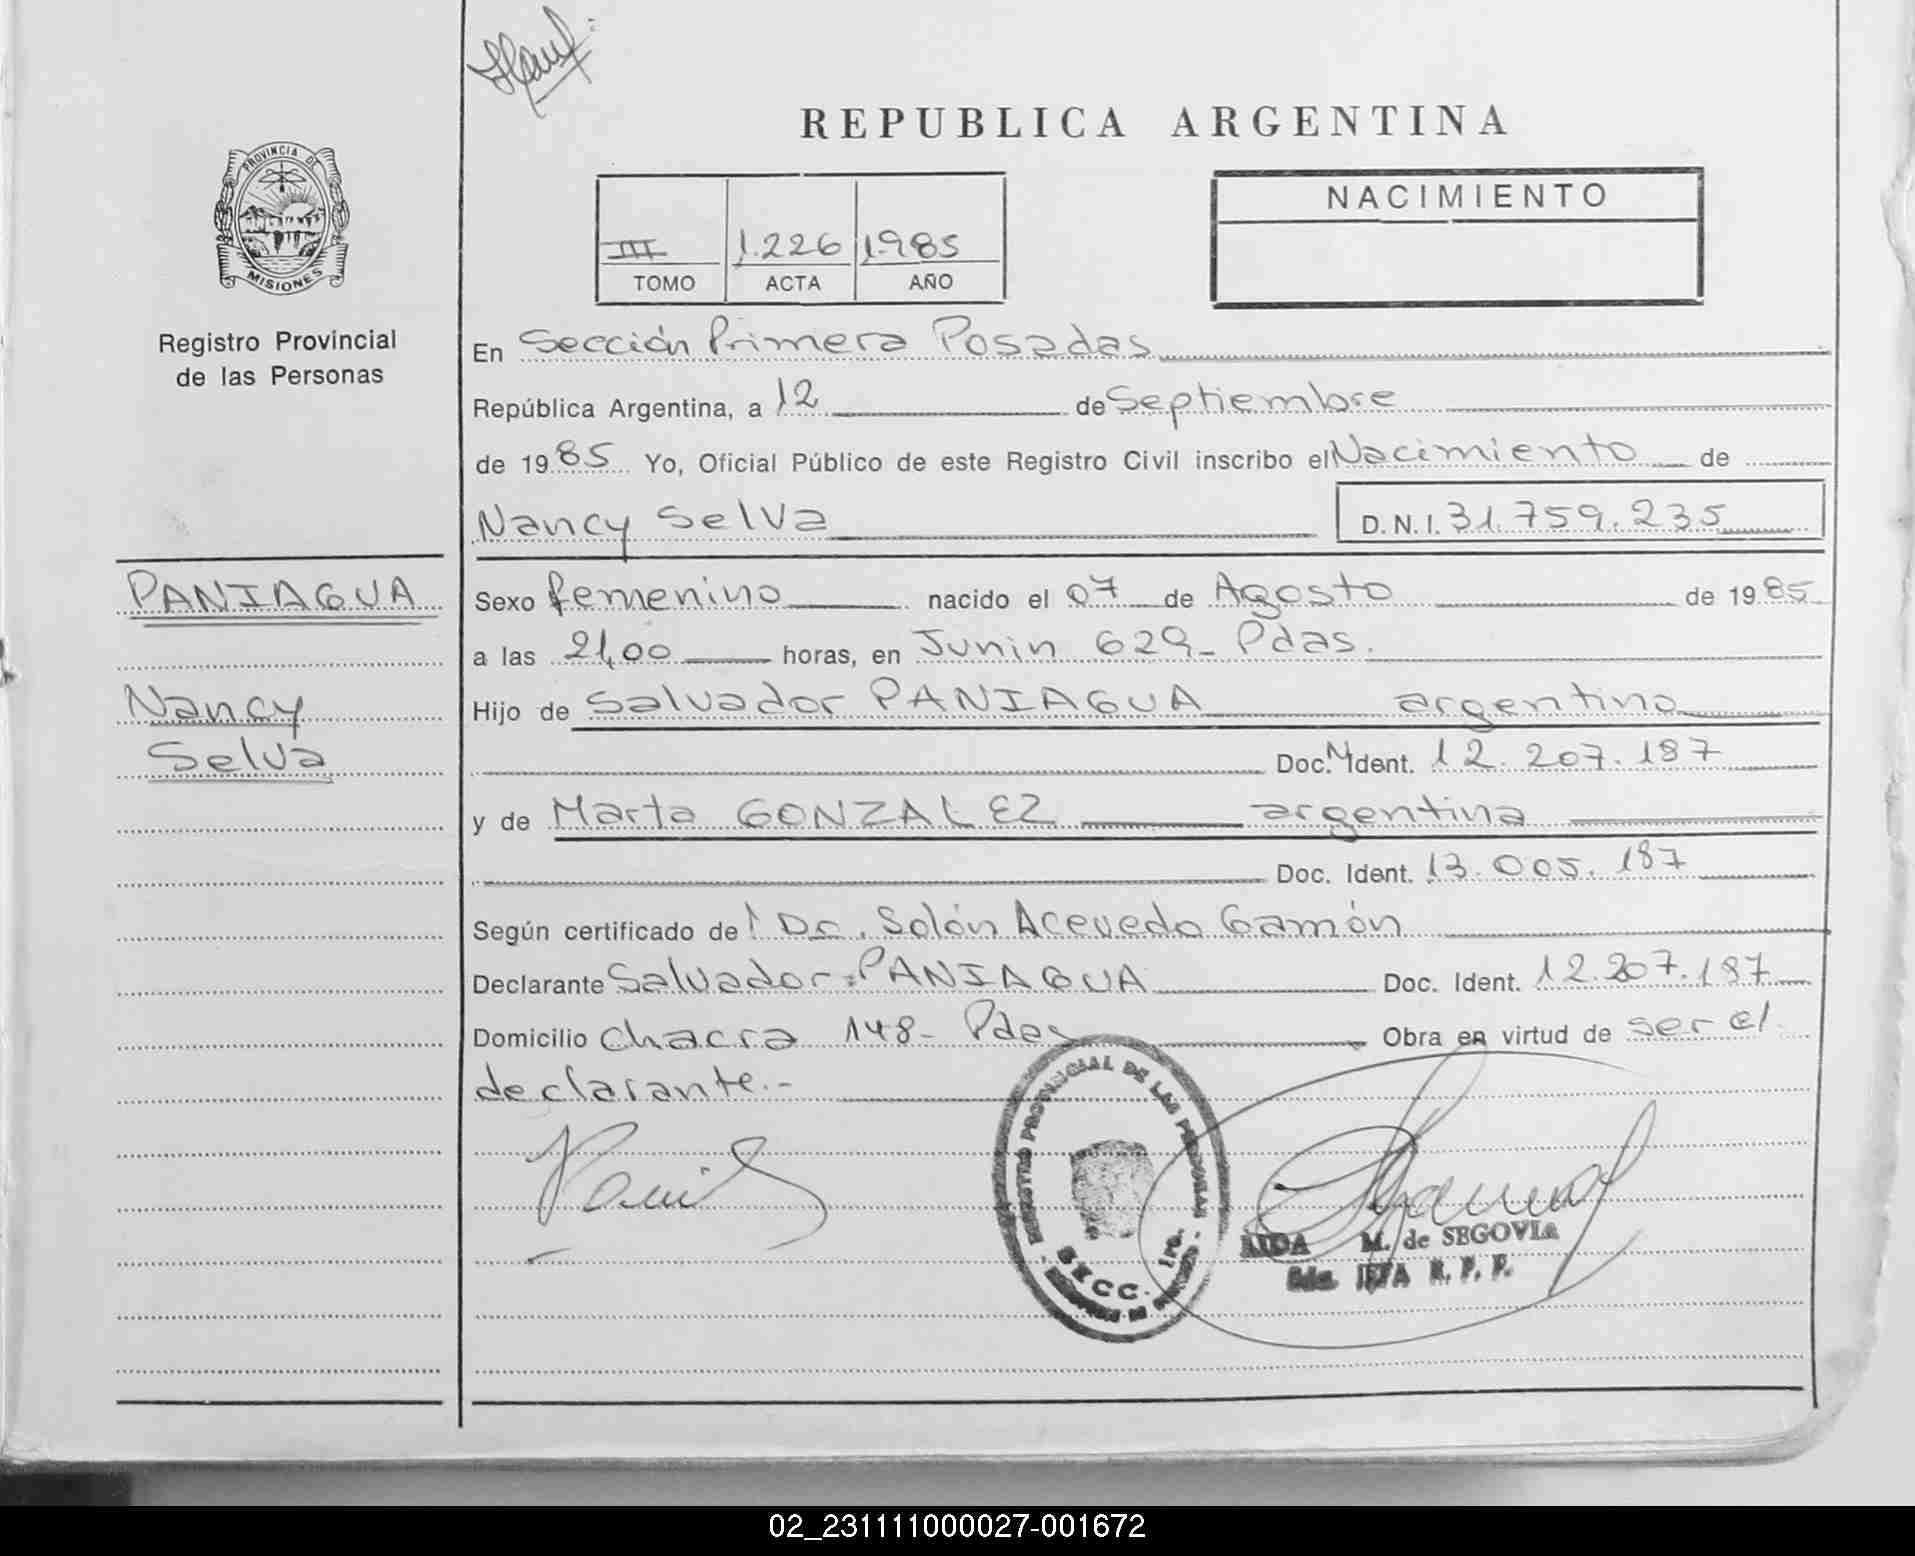 REPUBLICA ARGENTINA
PROVINCIA DE
MISIONES
Registro Provincial
de las Personas
III 1.226 1985
TOMO ACTA AÑO
NACIMIENTO
En Sección Primera Posadas
República Argentina, a 12 de Septiembre
de 1985 Yo, Oficial Público de este Registro Civil inscribo el Nacimiento de
Nancy Selva D.N.I. 31.759.235
PANIAGUA
Nancy
Selva
Sexo femenino nacido el 07 de Agosto de 1985
a las 21,00 horas, en Junin 629- Pdas.
Hijo de Salvador PANIAGUA argentino
Doc. Ident. 12.207.187
y de Marta GONZALEZ argentina
Doc. Ident. 13.005.187
Según certificado de Dr. Solón Acevedo Gamón
Declarante Salvador PANIAGUA Doc. Ident. 12.207.187
Domicilio Chacra 148- Pdas Obra en virtud de ser el
declarante.-
REGISTRO PROVINCIAL DE LAS PERSONAS
SECC. 1ra.
AIDA M. de SEGOVIA
JEFA R. P. P.
02_231111000027-001672